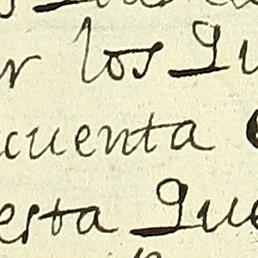 r los Qu
cuenta
esta Que